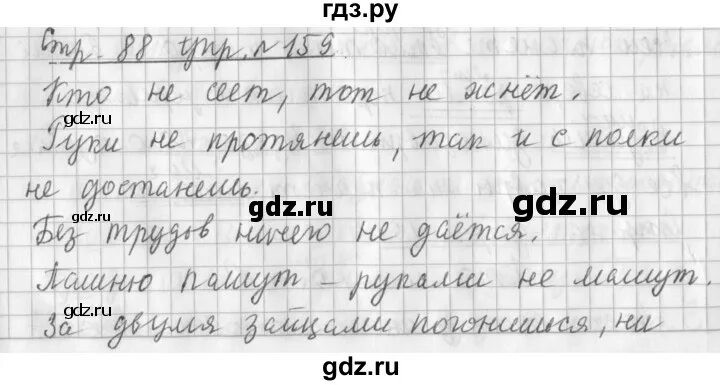 гдз.ру
Стр. 88 упр. № 159.
Кто не сеет, тот не жнёт.
gdz.ru gdz.ru
Руки не протянешь, так и с полки
не достанешь.
gdz.ru gdz.ru
Без трудов ничего не даётся.
Пашню пашут – руками не машут.
gdz.ru gdz.ru
За двумя зайцами погонишься, ни
gdz.ru